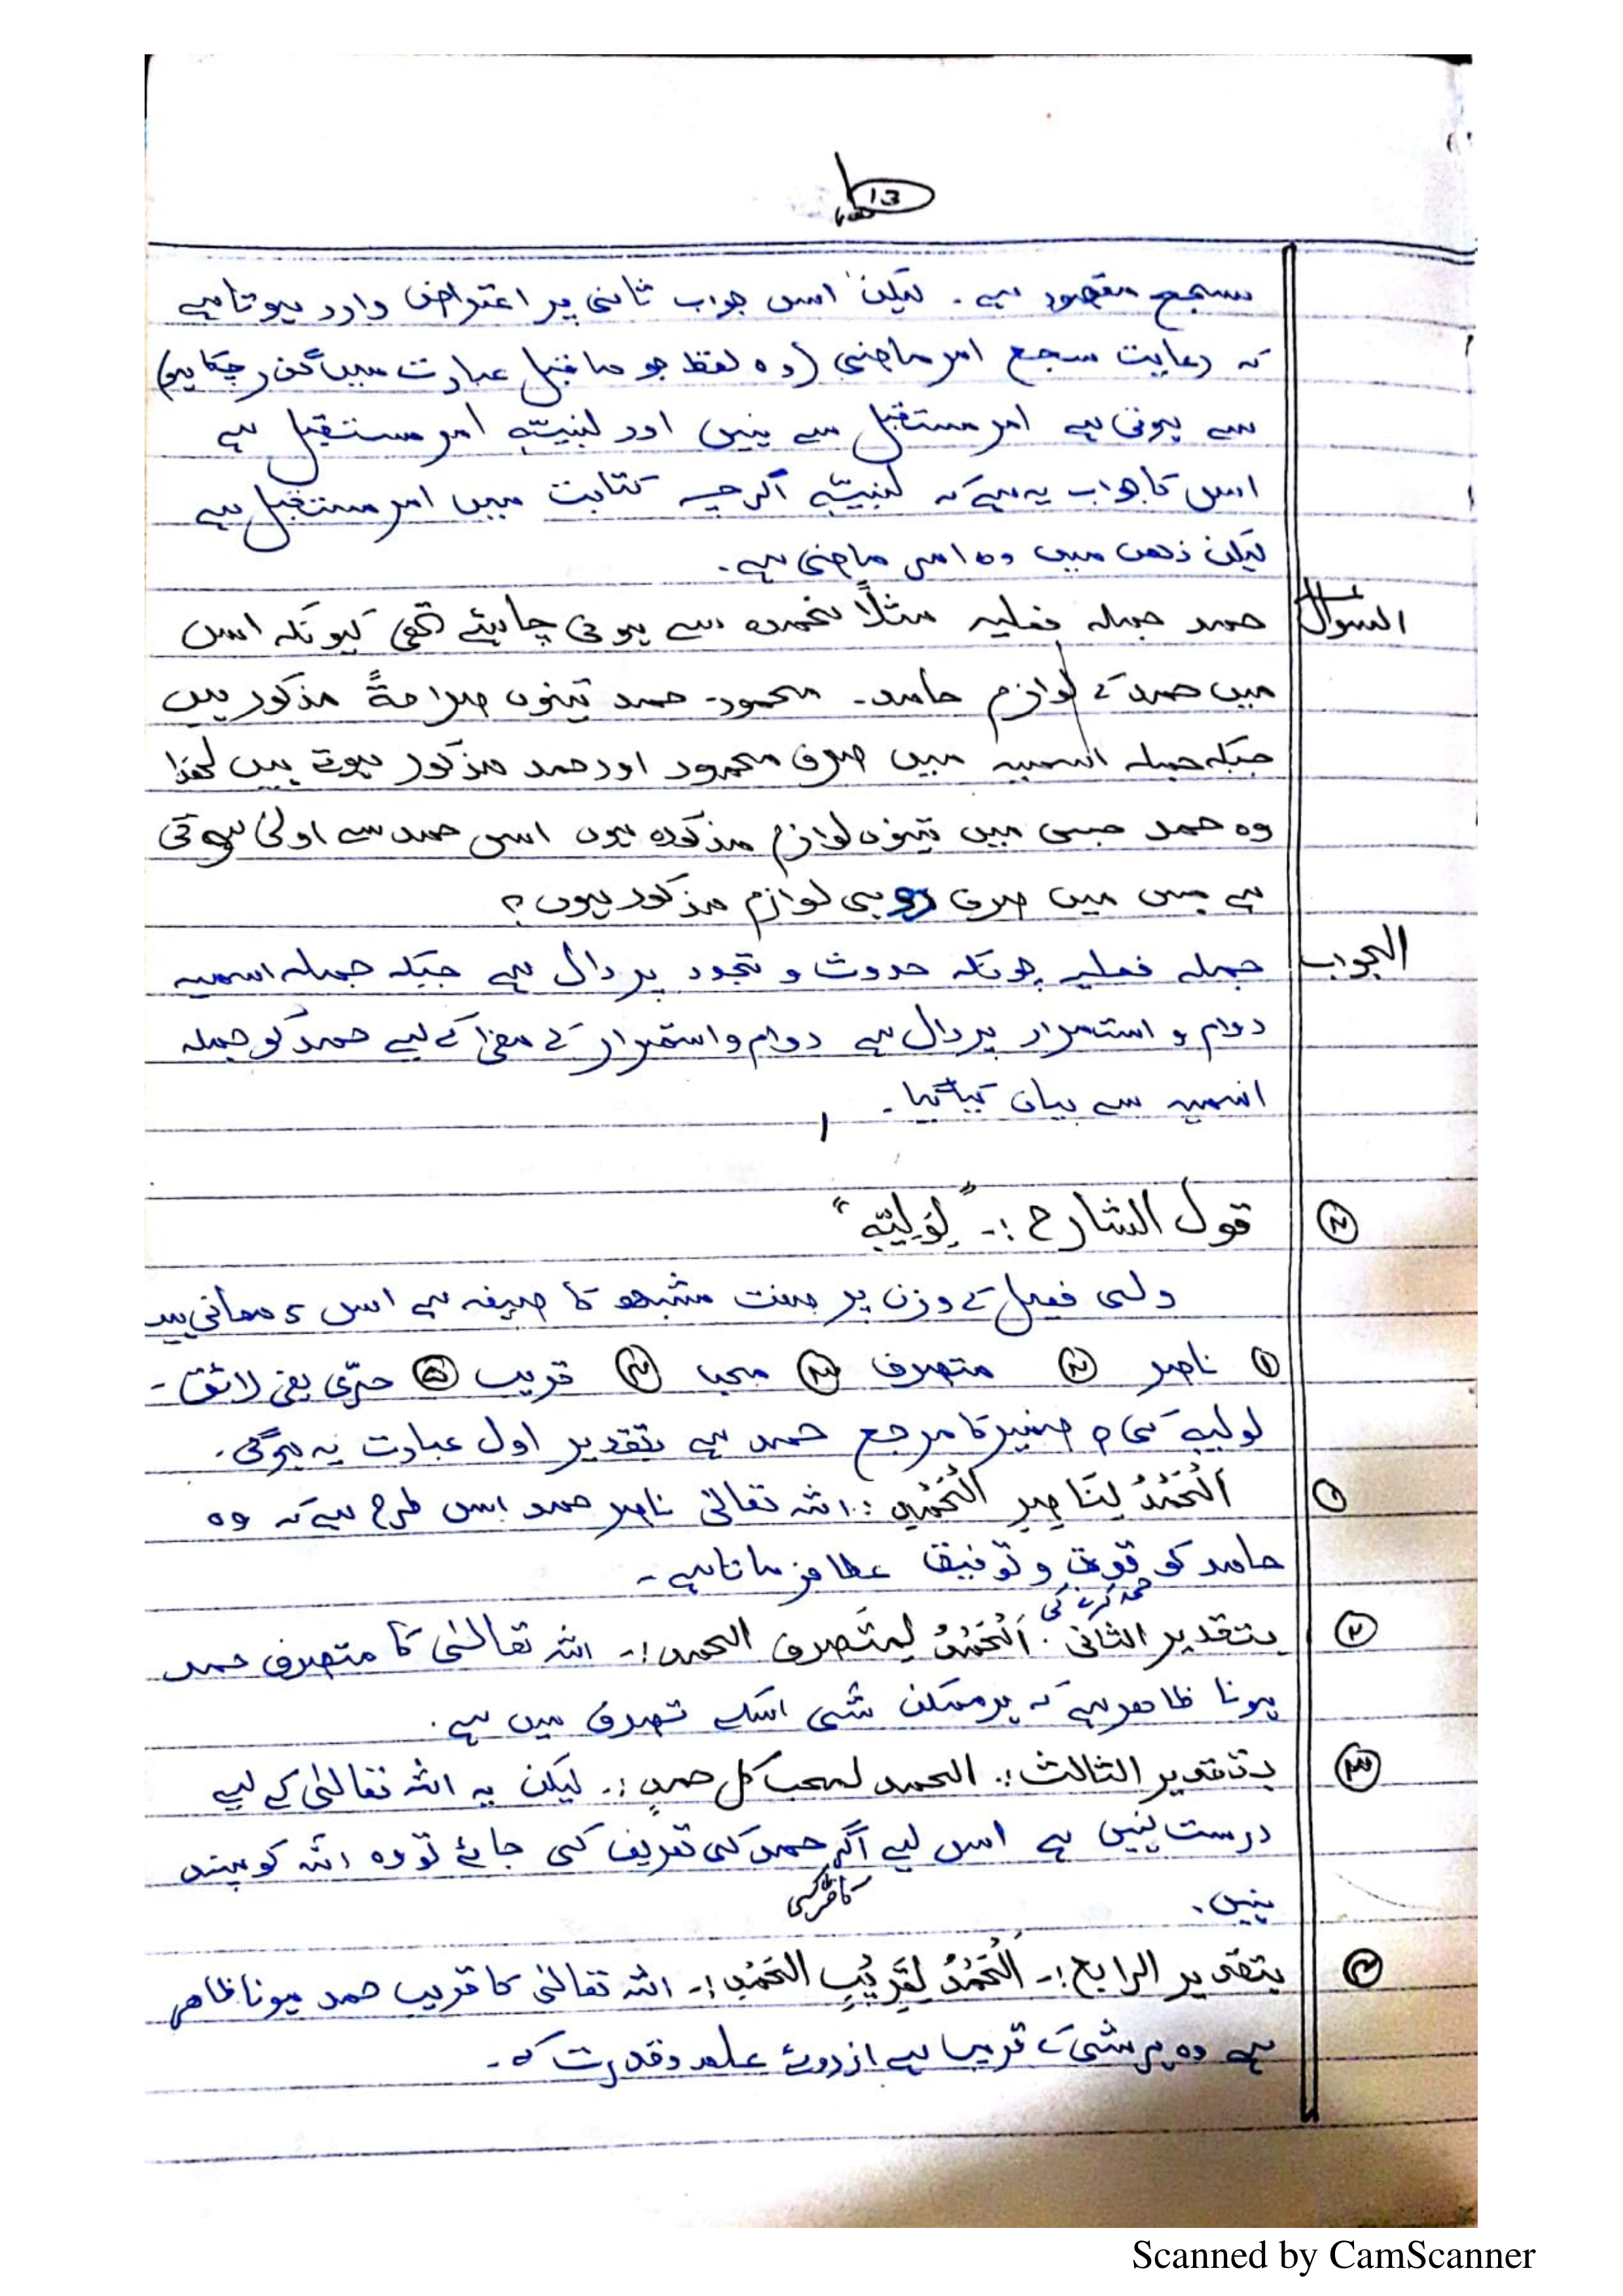 13
سجع مقصود ہے۔ لیکن اس جواب ثانی پر اعتراض وارد ہوتا ہے
کہ رعایت سجع امر ماضی (وہ لفظ جو ماقبل عبارت میں گذر چکا ہو)
سے ہوتی ہے امر مستقبل سے نہیں اور لنبیّہٖ امر مستقبل ہے
اس کا جواب یہ ہے کہ لنبیّہٖ اگرچہ کتابت میں امر مستقبل ہے
لیکن ذھن میں وہ امر ماضی ہے۔
السوال حمد جملہ فعلیہ مثلاً نحمدہ سے ہونی چاہئے تھی کیونکہ اس
میں حمد کے لوازم حامد۔ محمود۔ حمد تینوں صراحۃً مذکور ہیں
جبکہ جملہ اسمیہ میں صرف محمود اور حمد مذکور ہوتے ہیں لھٰذا
وہ حمد جس میں تینوں لوازم مذکورہ ہوں اس حمد سے اولیٰ ہوتی
ہے جس میں صرف دو ہی لوازم مذکور ہوں؟
الجواب جملہ فعلیہ چونکہ حدوث و تجدد پر دال ہے جبکہ جملہ اسمیہ
دوام و استمرار پر دال ہے دوام و استمرار کے معنیٰ کے لیے حمد کو جملہ
اسمیہ سے بیان کیا گیا۔
۲ قول الشارح :۔ "لِوَلِیِّہٖ"
ولی فعیل کے وزن پر صفت مشبھہ کا صیغہ ہے اس کے ۵ معانی ہیں
۱ ناصر ۲ متصرف ۳ محب ۴ قریب ۵ حرّی یعنی لائق۔
لولیہ کی ہ ضمیر کا مرجع حمد ہے بتقدیر اول عبارت یہ ہوگی۔
۱ اَلْحَمْدُ لِنَاصِرِ الْحَمْدِ :۔ اللہ تعالیٰ ناصر حمد اس طرح ہے کہ وہ
حامد کو قوت و توفیق عطا فرماتا ہے۔
حمد کرنے کی
۲ بتقدیر الثانی۔ اَلْحَمْدُ لِمُتَصرف الحمد :۔ اللہ تعالیٰ کا متصرف حمد
ہونا ظاھر ہے کہ ہر ممکن شئی اسکے تصرف میں ہے۔
۳ بتقدیر الثالث :۔ الحمد لمحب کل حمدٍ :۔ لیکن یہ اللہ تعالیٰ کے لیے
درست نہیں ہے اس لیے اگر حمد کی تعریف کی جائے تو وہ اللہ کو پسند
کافر کی
نہیں۔
۴ بتقدیر الرابع :۔ اَلْحَمْدُ لِقَرِیْبِ الْحَمْدِ :۔ اللہ تعالیٰ کا قریب حمد ہونا ظاھر
ہے وہ ہر شئی کے قریب ہے ازروئے علم و قدرت کے۔
Scanned by CamScanner